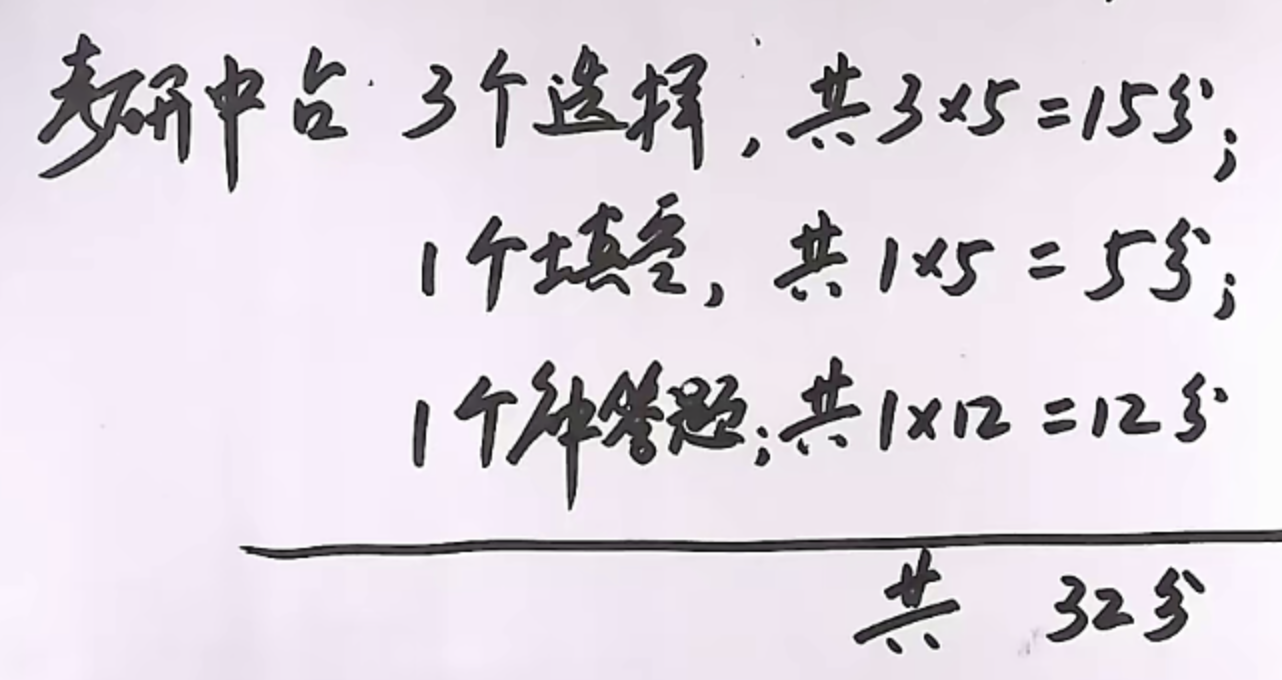 考研中占 3个选择,共3×5=15分;
1个填空,共1×5=5分;
1个解答题;共1×12=12分
共 32分